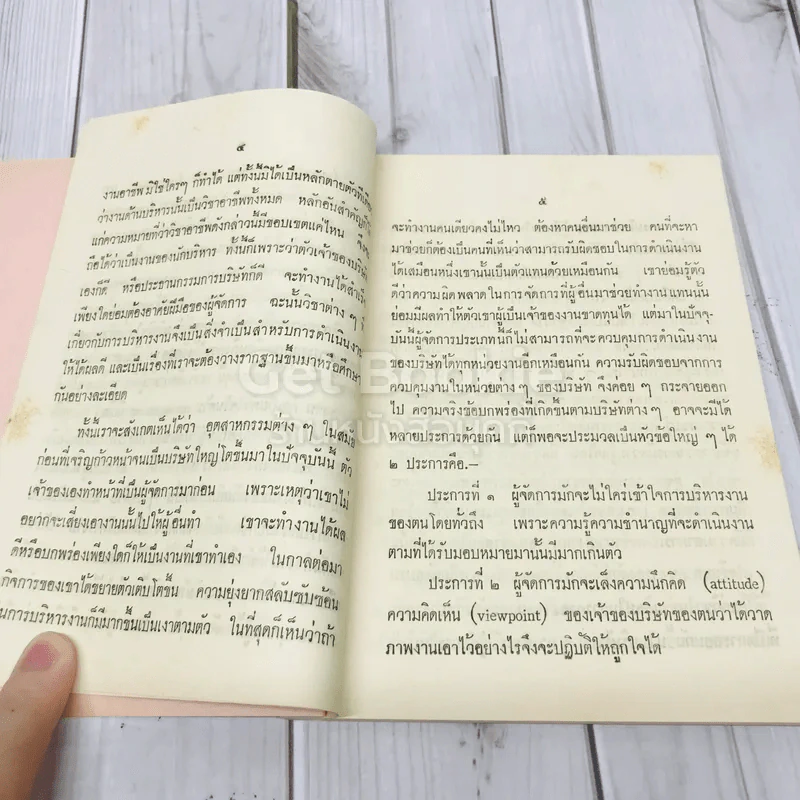 ๔
งานอาชีพ มิใช่ใครๆ ก็ทำได้ แต่ทั้งนี้มิได้เป็นหลักตายตัวทีเดียว
ว่างานด้านบริหารนั้นเป็นวิชาอาชีพทั้งหมด หลักอันสำคัญก็
แก่ความหมายที่ว่าวิชาอาชีพดังกล่าวนมีขอบเขตแค่ไหน จึงจะ
ถือได้ว่าเป็นงานของนักบริหาร ทั้งนี้ก็เพราะว่าตัวเจ้าของบริษัท
เองก็ดี หรือประธานกรรมการบริษัทก็ดี จะทำงานได้สำเร็จ
เพียงใดย่อมต้องอาศัยฝีมือของผู้จัดการ ฉะนั้นวิชาต่าง ๆ
เกี่ยวกับการบริหารงานจึงเป็นสิ่งจำเป็นสำหรับการดำเนินงาน
ให้ได้ผลดี และเป็นเรื่องที่เราจะต้องวางรากฐานขึ้นมาหรือศึกษา
กันอย่างละเอียด
ทั้งนี้เราจะสังเกตเห็นได้ว่า อุตสาหกรรมต่าง ๆ ในสมัย
ก่อนที่เจริญก้าวหน้าจนเป็นบริษัทใหญ่โตขึ้นมาในปัจจุบันนี้ ตัว
เจ้าของเองทำหน้าที่เป็นผู้จัดการมาก่อน เพราะเหตุว่าเขาไม่
อยากจะเสี่ยงเอางานนั้นไปให้ผู้อื่นทำ เขาจะทำงานได้ผล
ดีหรือบกพร่องเพียงใดก็ให้เป็นงานที่เขาทำเอง ในกาลต่อมา
กิจการของเขาได้ขยายตัวเติบโตขึ้น ความยุ่งยากสลับซับซ้อน
ในการบริหารงานก็มีมากขึ้นเป็นเงาตามตัว ในที่สุดก็เห็นว่าถ้า
๕
จะทำงานคนเดียวคงไม่ไหว ต้องหาคนอื่นมาช่วย คนที่จะหา
มาช่วยก็ต้องเป็นคนที่เห็นว่าสามารถรับผิดชอบในการดำเนินงาน
ได้เสมือนหนึ่งเขานั้นเป็นตัวแทนด้วยเหมือนกัน เขาย่อมรู้ตัว
ดีว่าความผิดพลาดในการจัดการที่ผู้อื่นมาช่วยทำงานแทนนั้น
ย่อมมีผลทำให้ตัวเขาผู้เป็นเจ้าของงานขาดทุนได้ แต่มาในปัจจุ-
บันนี้ผู้จัดการประเภทนี้ก็ไม่สามารถที่จะควบคุมการดำเนินงาน
ของบริษัทได้ทุกหน่วยงานอีกเหมือนกัน ความรับผิดชอบจากการ
ควบคุมงานในหน่วยต่างๆ ของบริษัท จึงคอย ๆ กระจายออก
ไป ความจริงข้อบกพร่องที่เกิดขึ้นตามบริษัทต่าง ๆ อาจจะมีได้
หลายประการด้วยกัน แต่ก็พอจะประมวลเป็นหัวข้อใหญ่ ๆ ได้
๒ ประการคือ.—
ประการที่ ๑ ผู้จัดการมักจะไม่ใคร่เข้าใจการบริหารงาน
ของตนโดยทั่วถึง เพราะความรู้ความชำนาญที่จะดำเนินงาน
ตามที่ได้รับมอบหมายมานั้นมีมากเกินตัว
ประการที่ ๒ ผู้จัดการมักจะเล็งความนึกคิด (attitude)
ความคิดเห็น (viewpoint) ของเจ้าของบริษัทของตนว่าได้วาด
ภาพงานเอาไว้อย่างไรจึงจะปฏิบัติให้ถูกใจได้